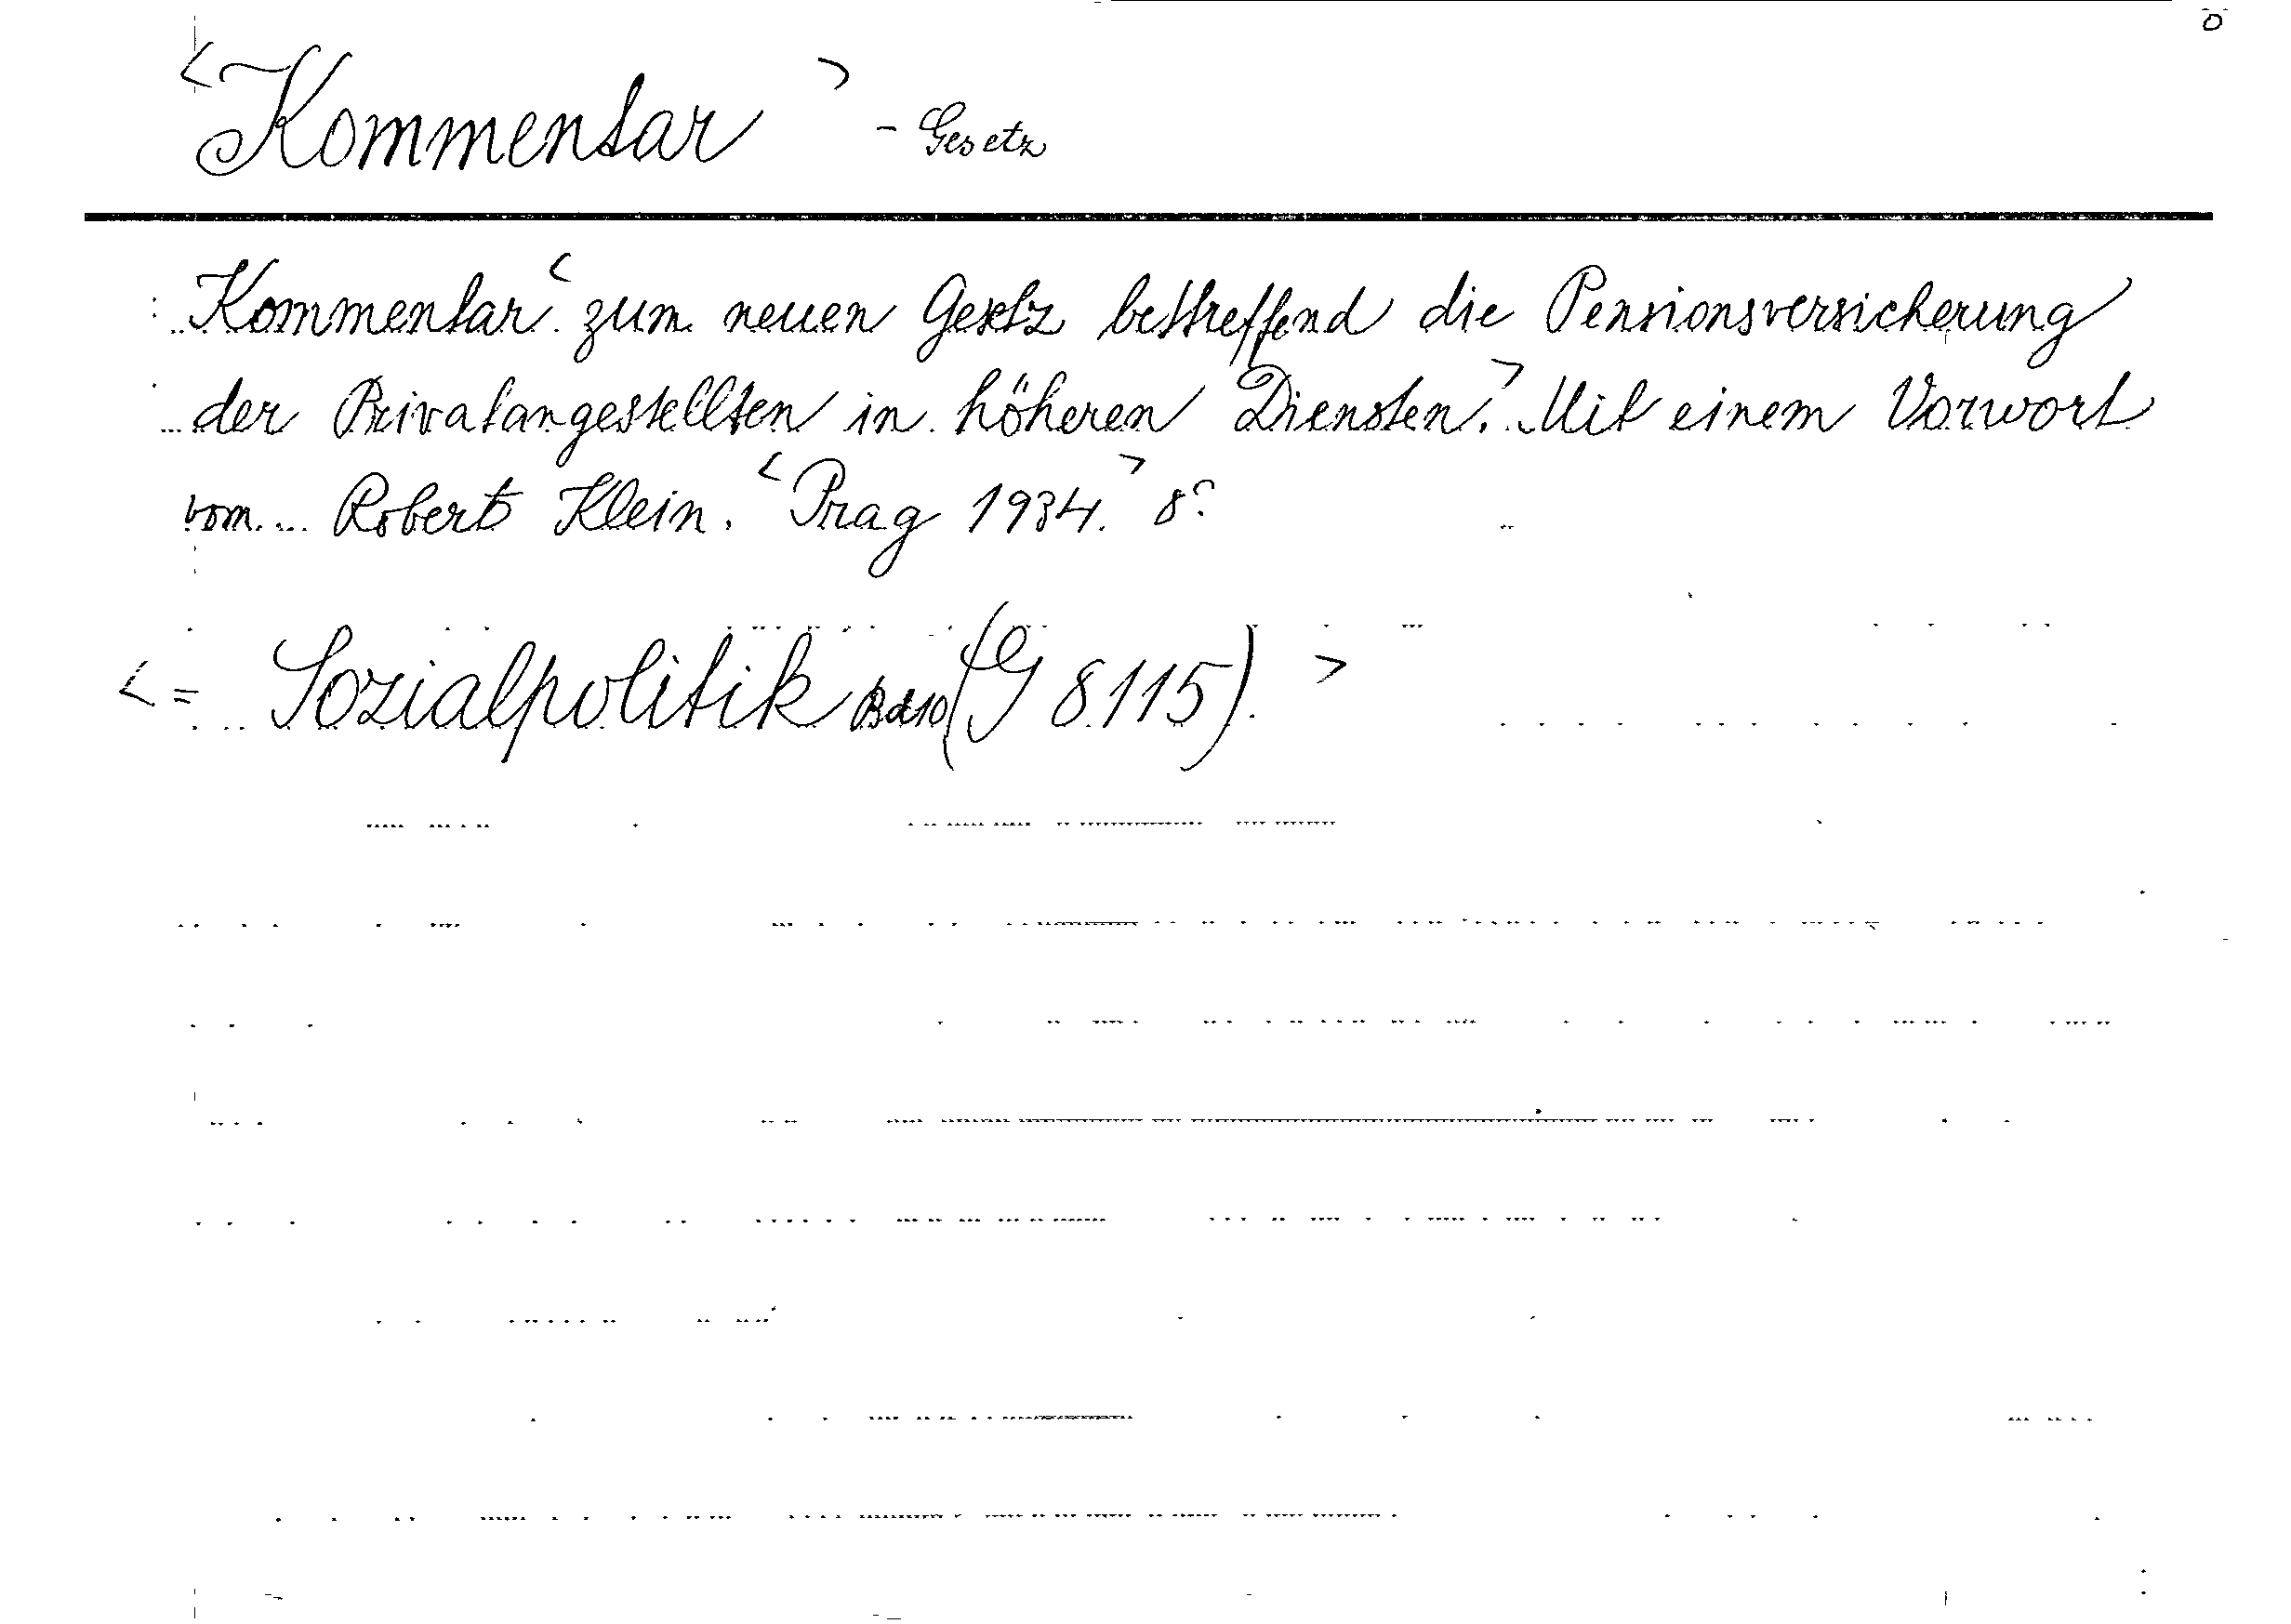 <Kommentar> - Gesetz
Kommentar < zum neuen Gesetz bettreffend die Pensionsversicherung
der Privatangestellten in höheren Diensten.> Mit einem Vorwort
vom... Robert Klein. <Prag 1934.> 8°.
<= Sozialpolitik Bd10 (G 8115).>